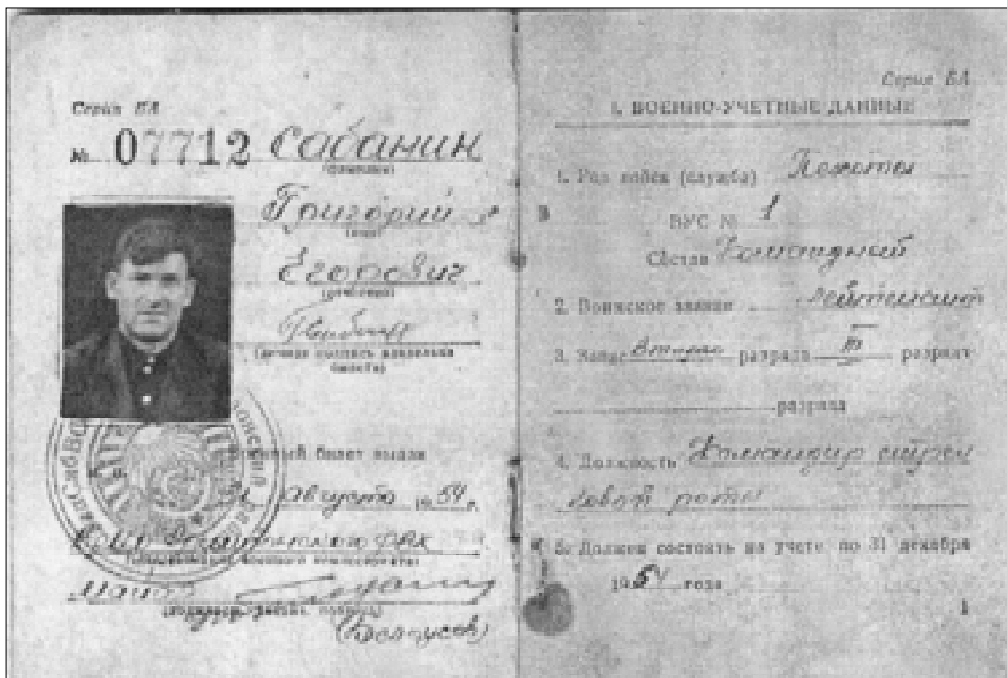 Серия БА
№ 07712 Сабанин
(фамилия)
Григорий
(имя)
Егорович
(отчество)
(личная подпись владельца
билета)
Военный билет выдан
31 Августа 1954 г.
военного комиссариата)
Майор
(Белоусов)
Серия БА
I. ВОЕННО-УЧЕТНЫЕ ДАННЫЕ
1. Род войск (служба) Пехоты
ВУС № 1
Состав Командный
2. Воинское звание лейтенант
3. Запас второго разряда III разряд
разряда
4. Должность Командир стрел
ковой роты
5. Должен состоять на учете по 31 декабря
1954 года
1